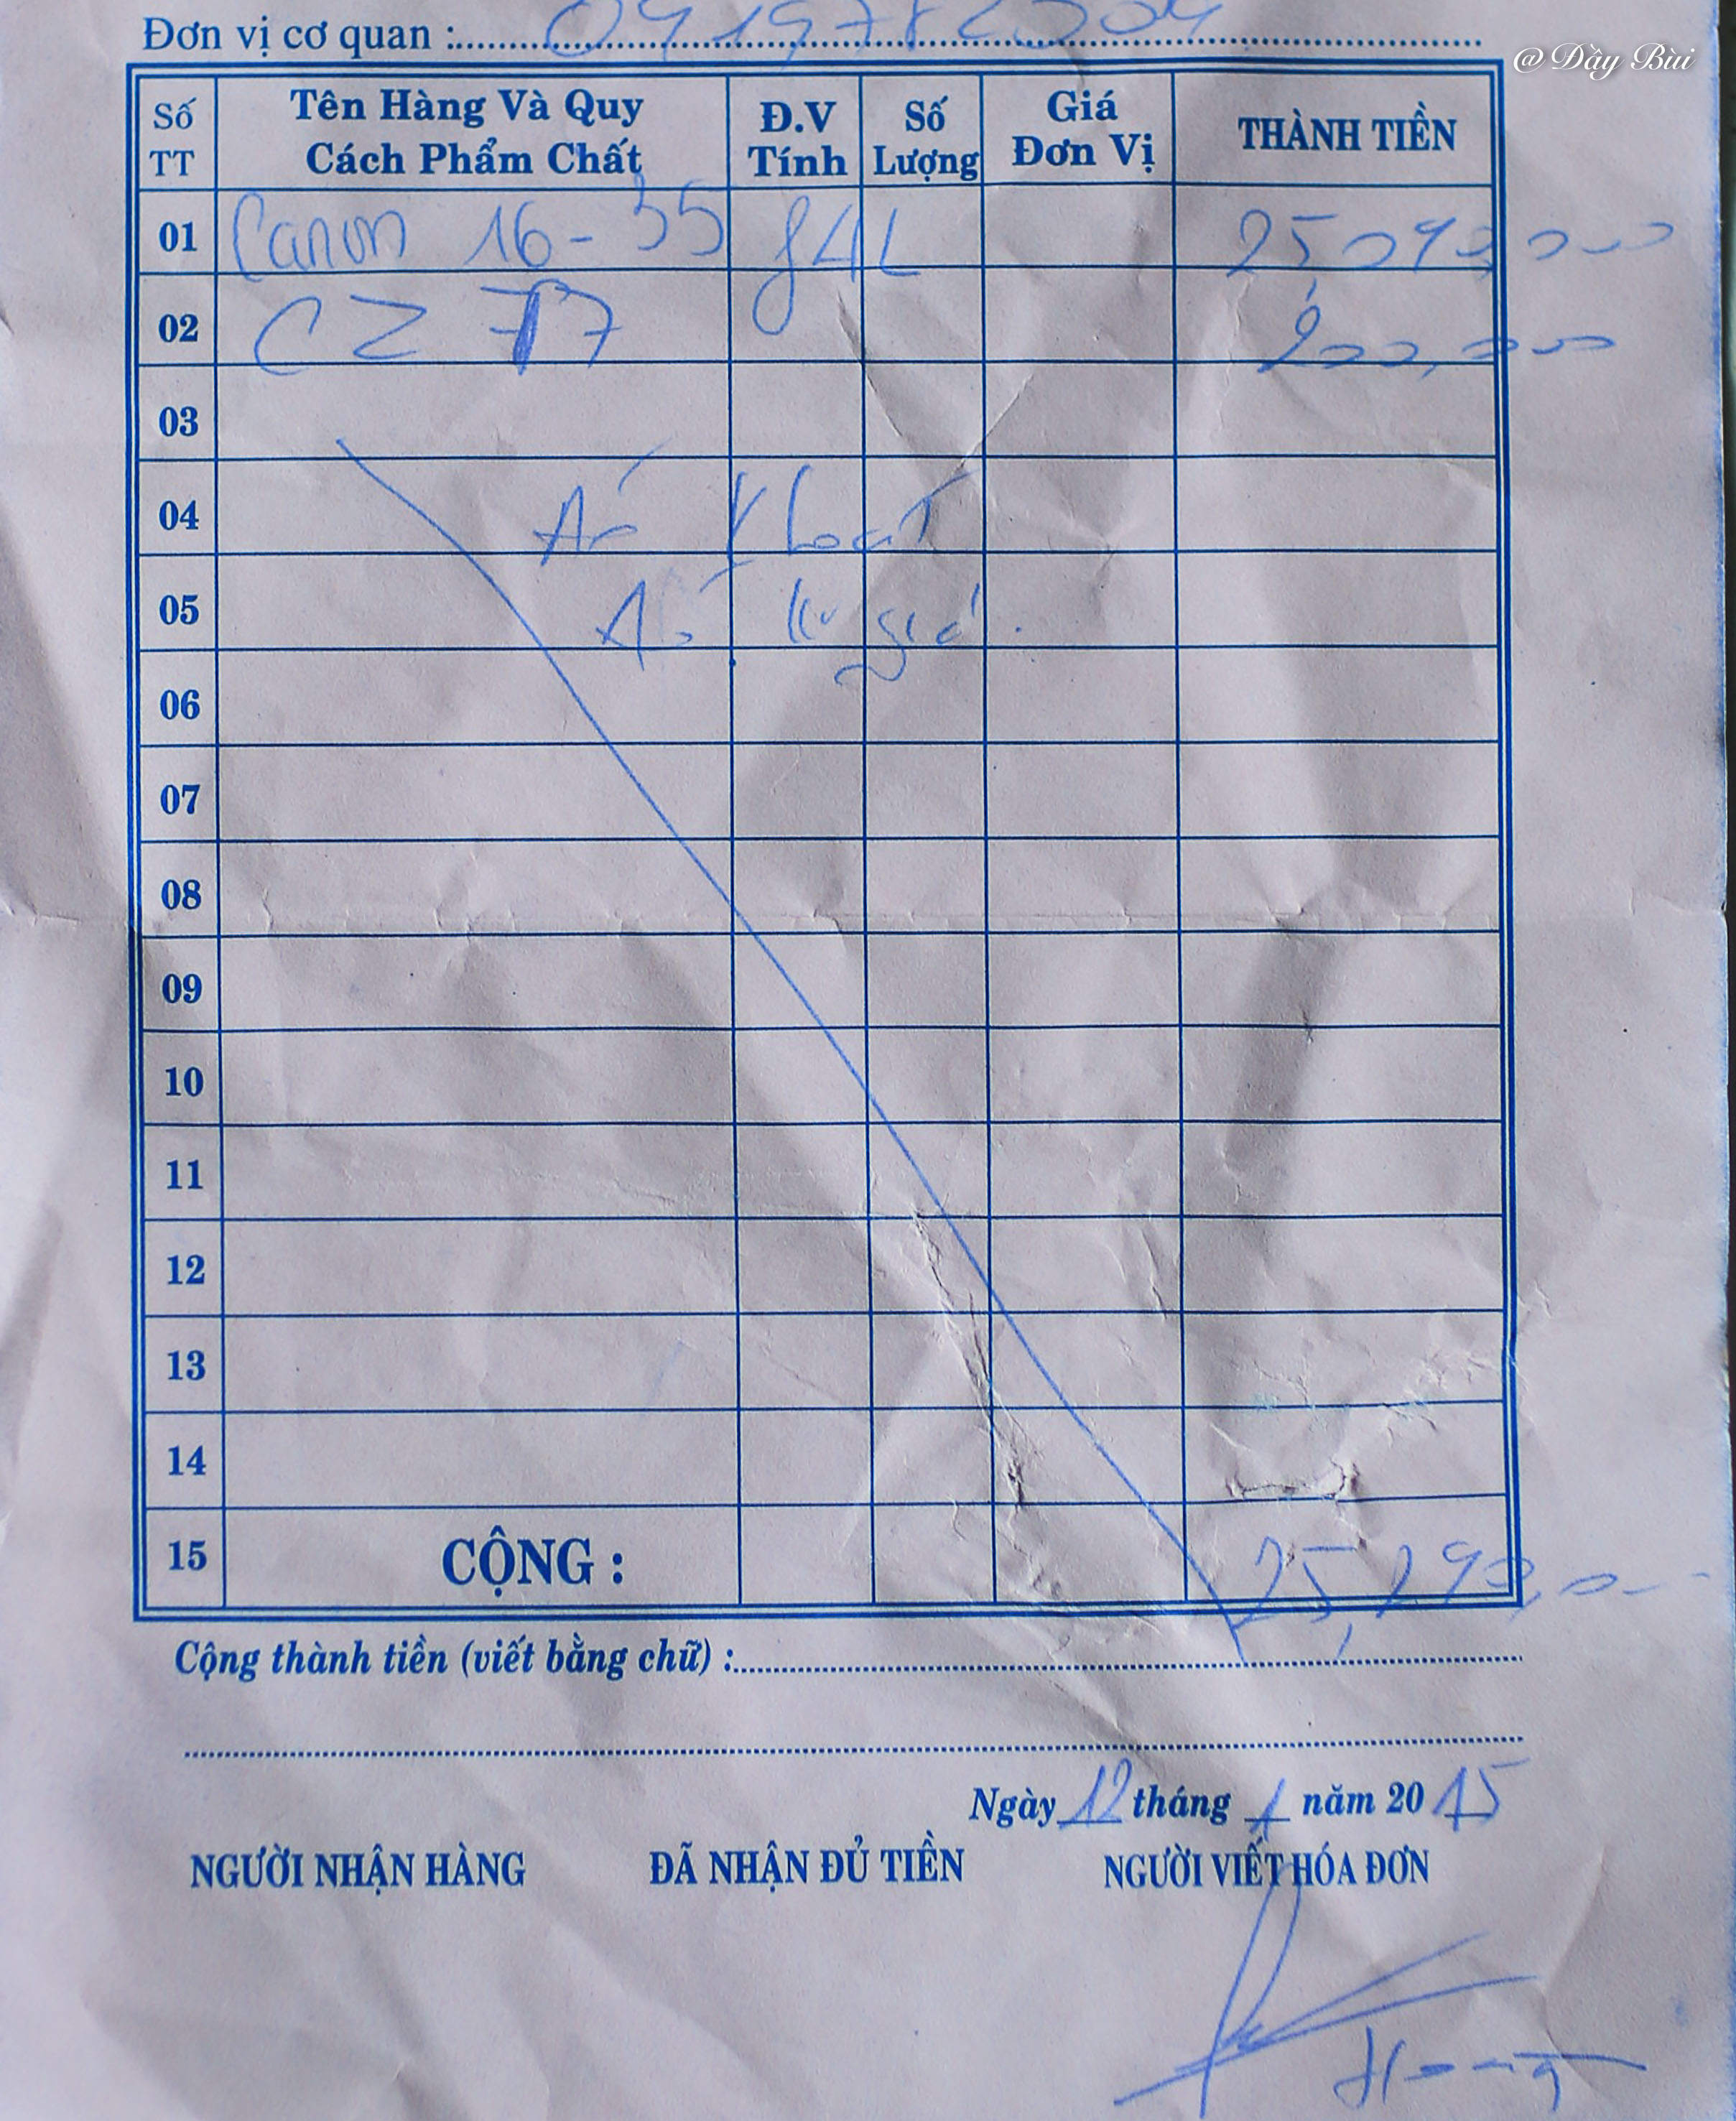 Đơn vị cơ quan :
@ Dầy Bùi
Số TT Tên Hàng Và Quy Cách Phẩm Chất Đ.V Tính Số Lượng Giá Đơn Vị THÀNH TIỀN
01 Canon 16-35 f4L 25,090,000
02 CZ 77 200,000
03
04 Áo khoát
05
06
07
08
09
10
11
12
13
14
15 CỘNG : 25,290,000
Cộng thành tiền (viết bằng chữ) :
Ngày 12 tháng 1 năm 2015
NGƯỜI NHẬN HÀNG ĐÃ NHẬN ĐỦ TIỀN NGƯỜI VIẾT HÓA ĐƠN